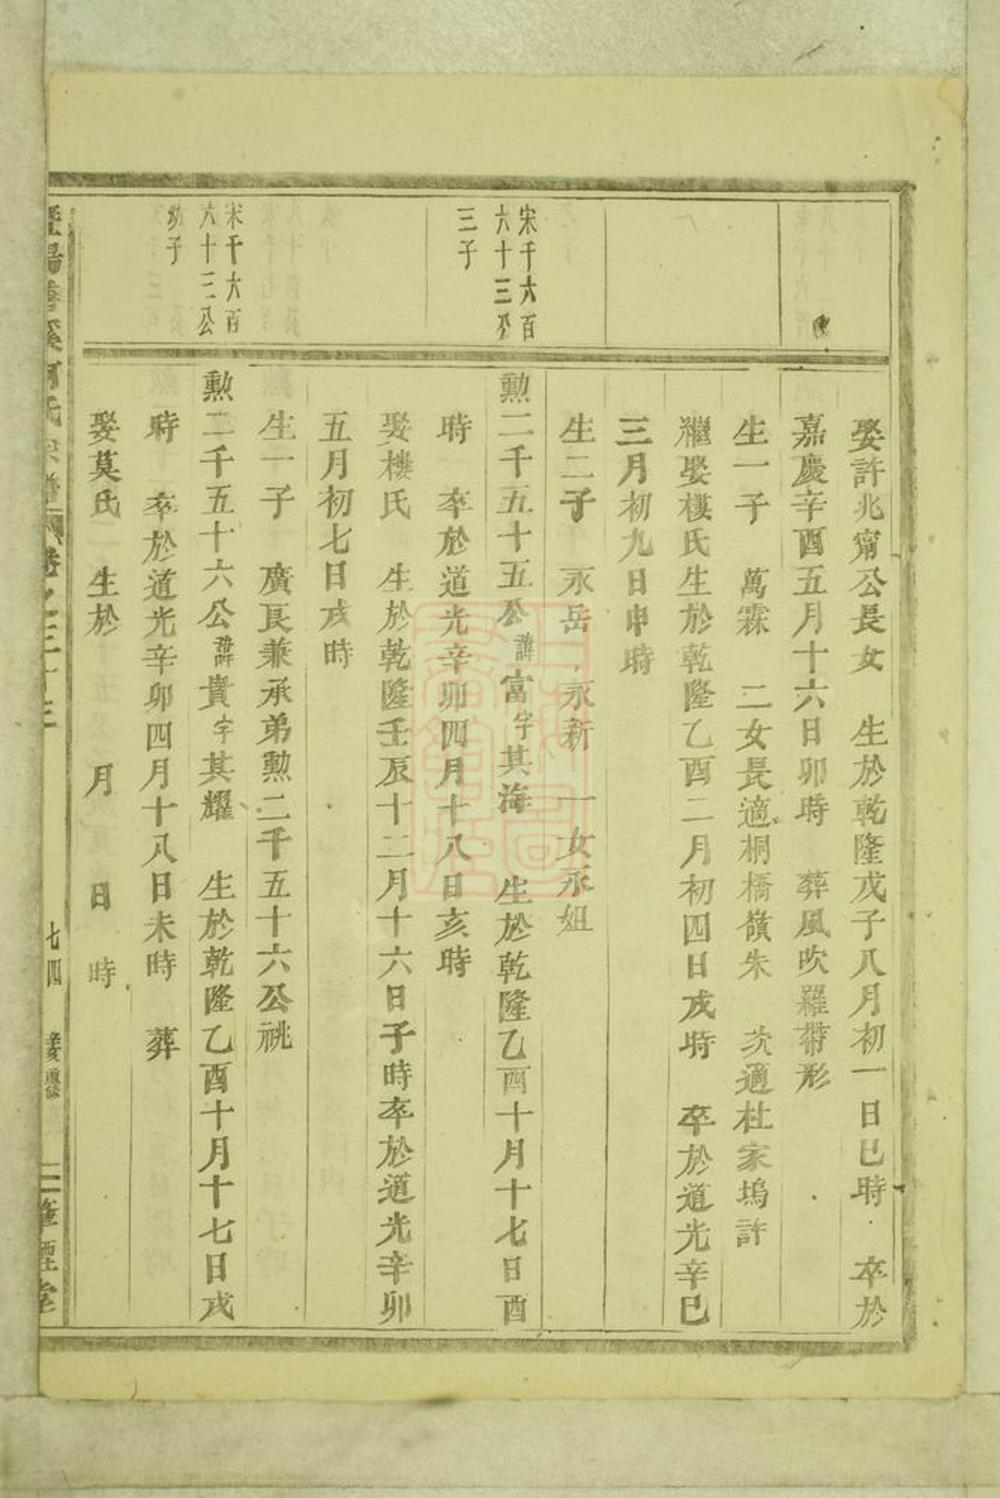 娶許兆甯公長女　生於乾隆戊子八月初一日巳時　卒於
嘉慶辛酉五月十六日卯時　葬風吹羅帶形
生一子　萬霖　二女長適桐橋嶺朱　次適杜家塢許
繼娶樓氏生於乾隆乙酉二月初四日戌時　卒於道光辛巳
三月初九日申時
生二子　永岳　永新　一女永妞
宋千六百
六十三公
三子
勲二千五十五公諱富字其海　生於乾隆乙酉十月十七日酉
時　卒於道光辛卯四月十八日亥時
娶樓氏　生於乾隆壬辰十二月十六日子時卒於道光辛卯
五月初七日戌時
生一子　廣良兼承弟勲二千五十六公祧
宋千六百
六十三公
幼子
勲二千五十六公諱貴字其耀　生於乾隆乙酉十月十七日戌
時　卒於道光辛卯四月十八日未時　葬
娶莫氏　生於　月　日　時
氏宗譜　卷之三十三　七四